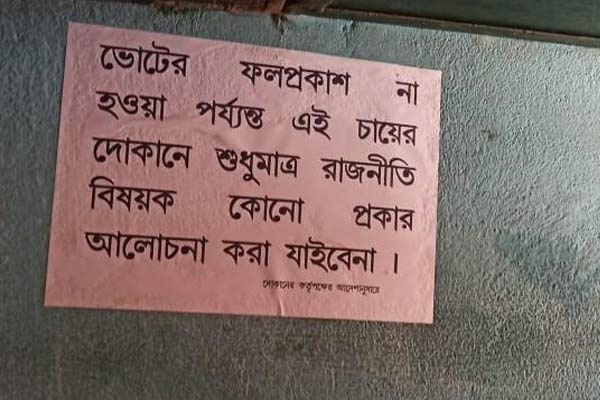 ভোটের ফলপ্রকাশ না
হওয়া পর্য্যন্ত এই চায়ের
দোকানে শুধুমাত্র রাজনীতি
বিষয়ক কোনো প্রকার
আলোচনা করা যাইবেনা ।
দোকানের কর্তৃপক্ষের আদেশানুসারে